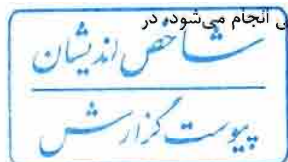 ی انجام می‌شود، در
شاخص اندیشان
پیوست گزارش